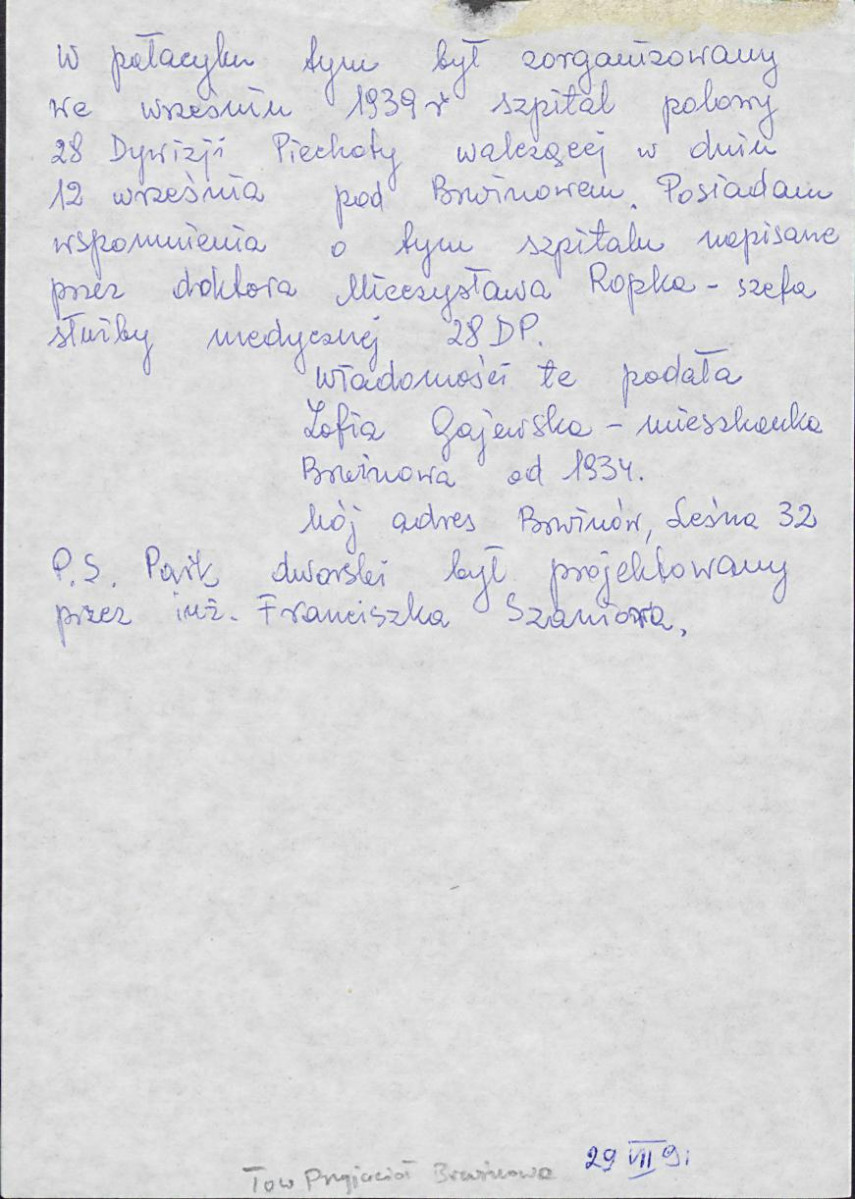 W pałacyku tym był zorganizowany
we wrześniu 1939 r szpital polowy
28 Dywizji Piechoty walczącej w dniu
12 września pod Brwinowem. Posiadam
wspomnienia o tym szpitalu napisane
przez doktora Mieczysława Ropka - szefa
służby medycznej 28 DP.
Wiadomości te podała
Zofia Gajewska - mieszkanka
Brwinowa od 1934.
Mój adres Brwinów, Leśna 32
P.S. Park dworski był projektowany
przez inż. Franciszka Szaniora.
29 VII 91
Tow Przyjaciół Brwinowa